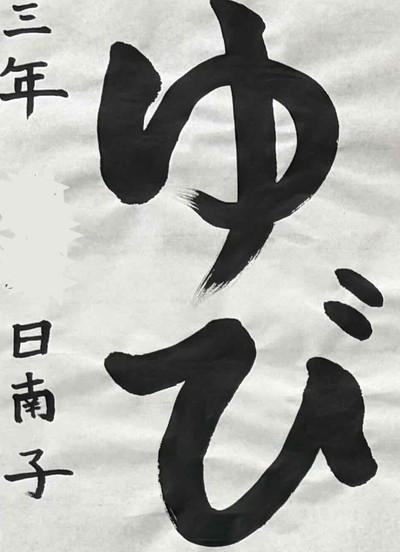 ゆび
三年 日南子